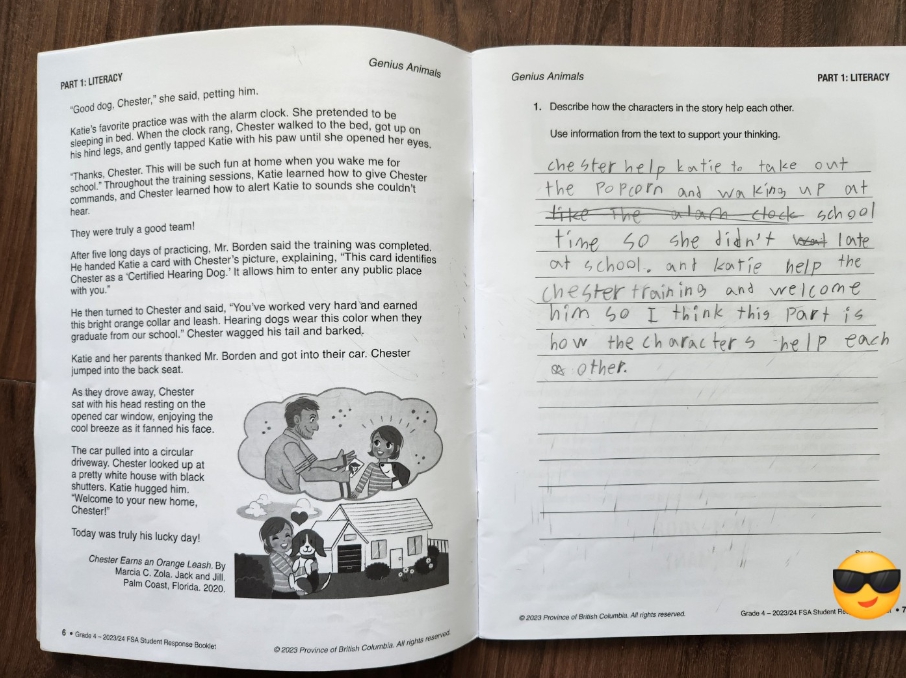 PART 1: LITERACY
Genius Animals
"Good dog, Chester," she said, petting him.
Katie's favorite practice was with the alarm clock. She pretended to be
sleeping in bed. When the clock rang, Chester walked to the bed, got up on
his hind legs, and gently tapped Katie with his paw until she opened her eyes.
"Thanks, Chester. This will be such fun at home when you wake me for
school." Throughout the training sessions, Katie learned how to give Chester
commands, and Chester learned how to alert Katie to sounds she couldn't
hear.
They were truly a good team!
After five long days of practicing, Mr. Borden said the training was completed.
He handed Katie a card with Chester's picture, explaining, "This card identifies
Chester as a 'Certified Hearing Dog.' It allows him to enter any public place
with you."
He then turned to Chester and said, "You've worked very hard and earned
this bright orange collar and leash. Hearing dogs wear this color when they
graduate from our school." Chester wagged his tail and barked.
Katie and her parents thanked Mr. Borden and got into their car. Chester
jumped into the back seat.
As they drove away, Chester
sat with his head resting on the
opened car window, enjoying the
cool breeze as it fanned his face.
The car pulled into a circular
driveway. Chester looked up at
a pretty white house with black
shutters. Katie hugged him.
"Welcome to your new home,
Chester!"
Today was truly his lucky day!
Chester Earns an Orange Leash. By
Marcia C. Zola. Jack and Jill.
Palm Coast, Florida. 2020.
6 • Grade 4 – 2023/24 FSA Student Response Booklet
© 2023 Province of British Columbia. All rights reserved.
Genius Animals
PART 1: LITERACY
1. Describe how the characters in the story help each other.
Use information from the text to support your thinking.
chester help katie to take out
the popcorn and waking up at
like the alarh clock school
time so she didn't late
at school. ant katie help the
chester training and welcome
him so I think this part is
how the characters help each
other.
© 2023 Province of British Columbia. All rights reserved.
Grade 4 – 2023/24 FSA Student • 7